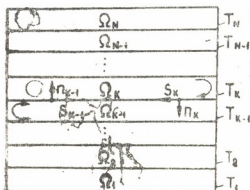 Ω_N T_N
Ω_N-1 T_N-1
⋮
n_K-1 Ω_K S_K T_K
S_K-1 Ω_K-1 n_K T_K-1
⋮
Ω_2 T_2
Ω_1